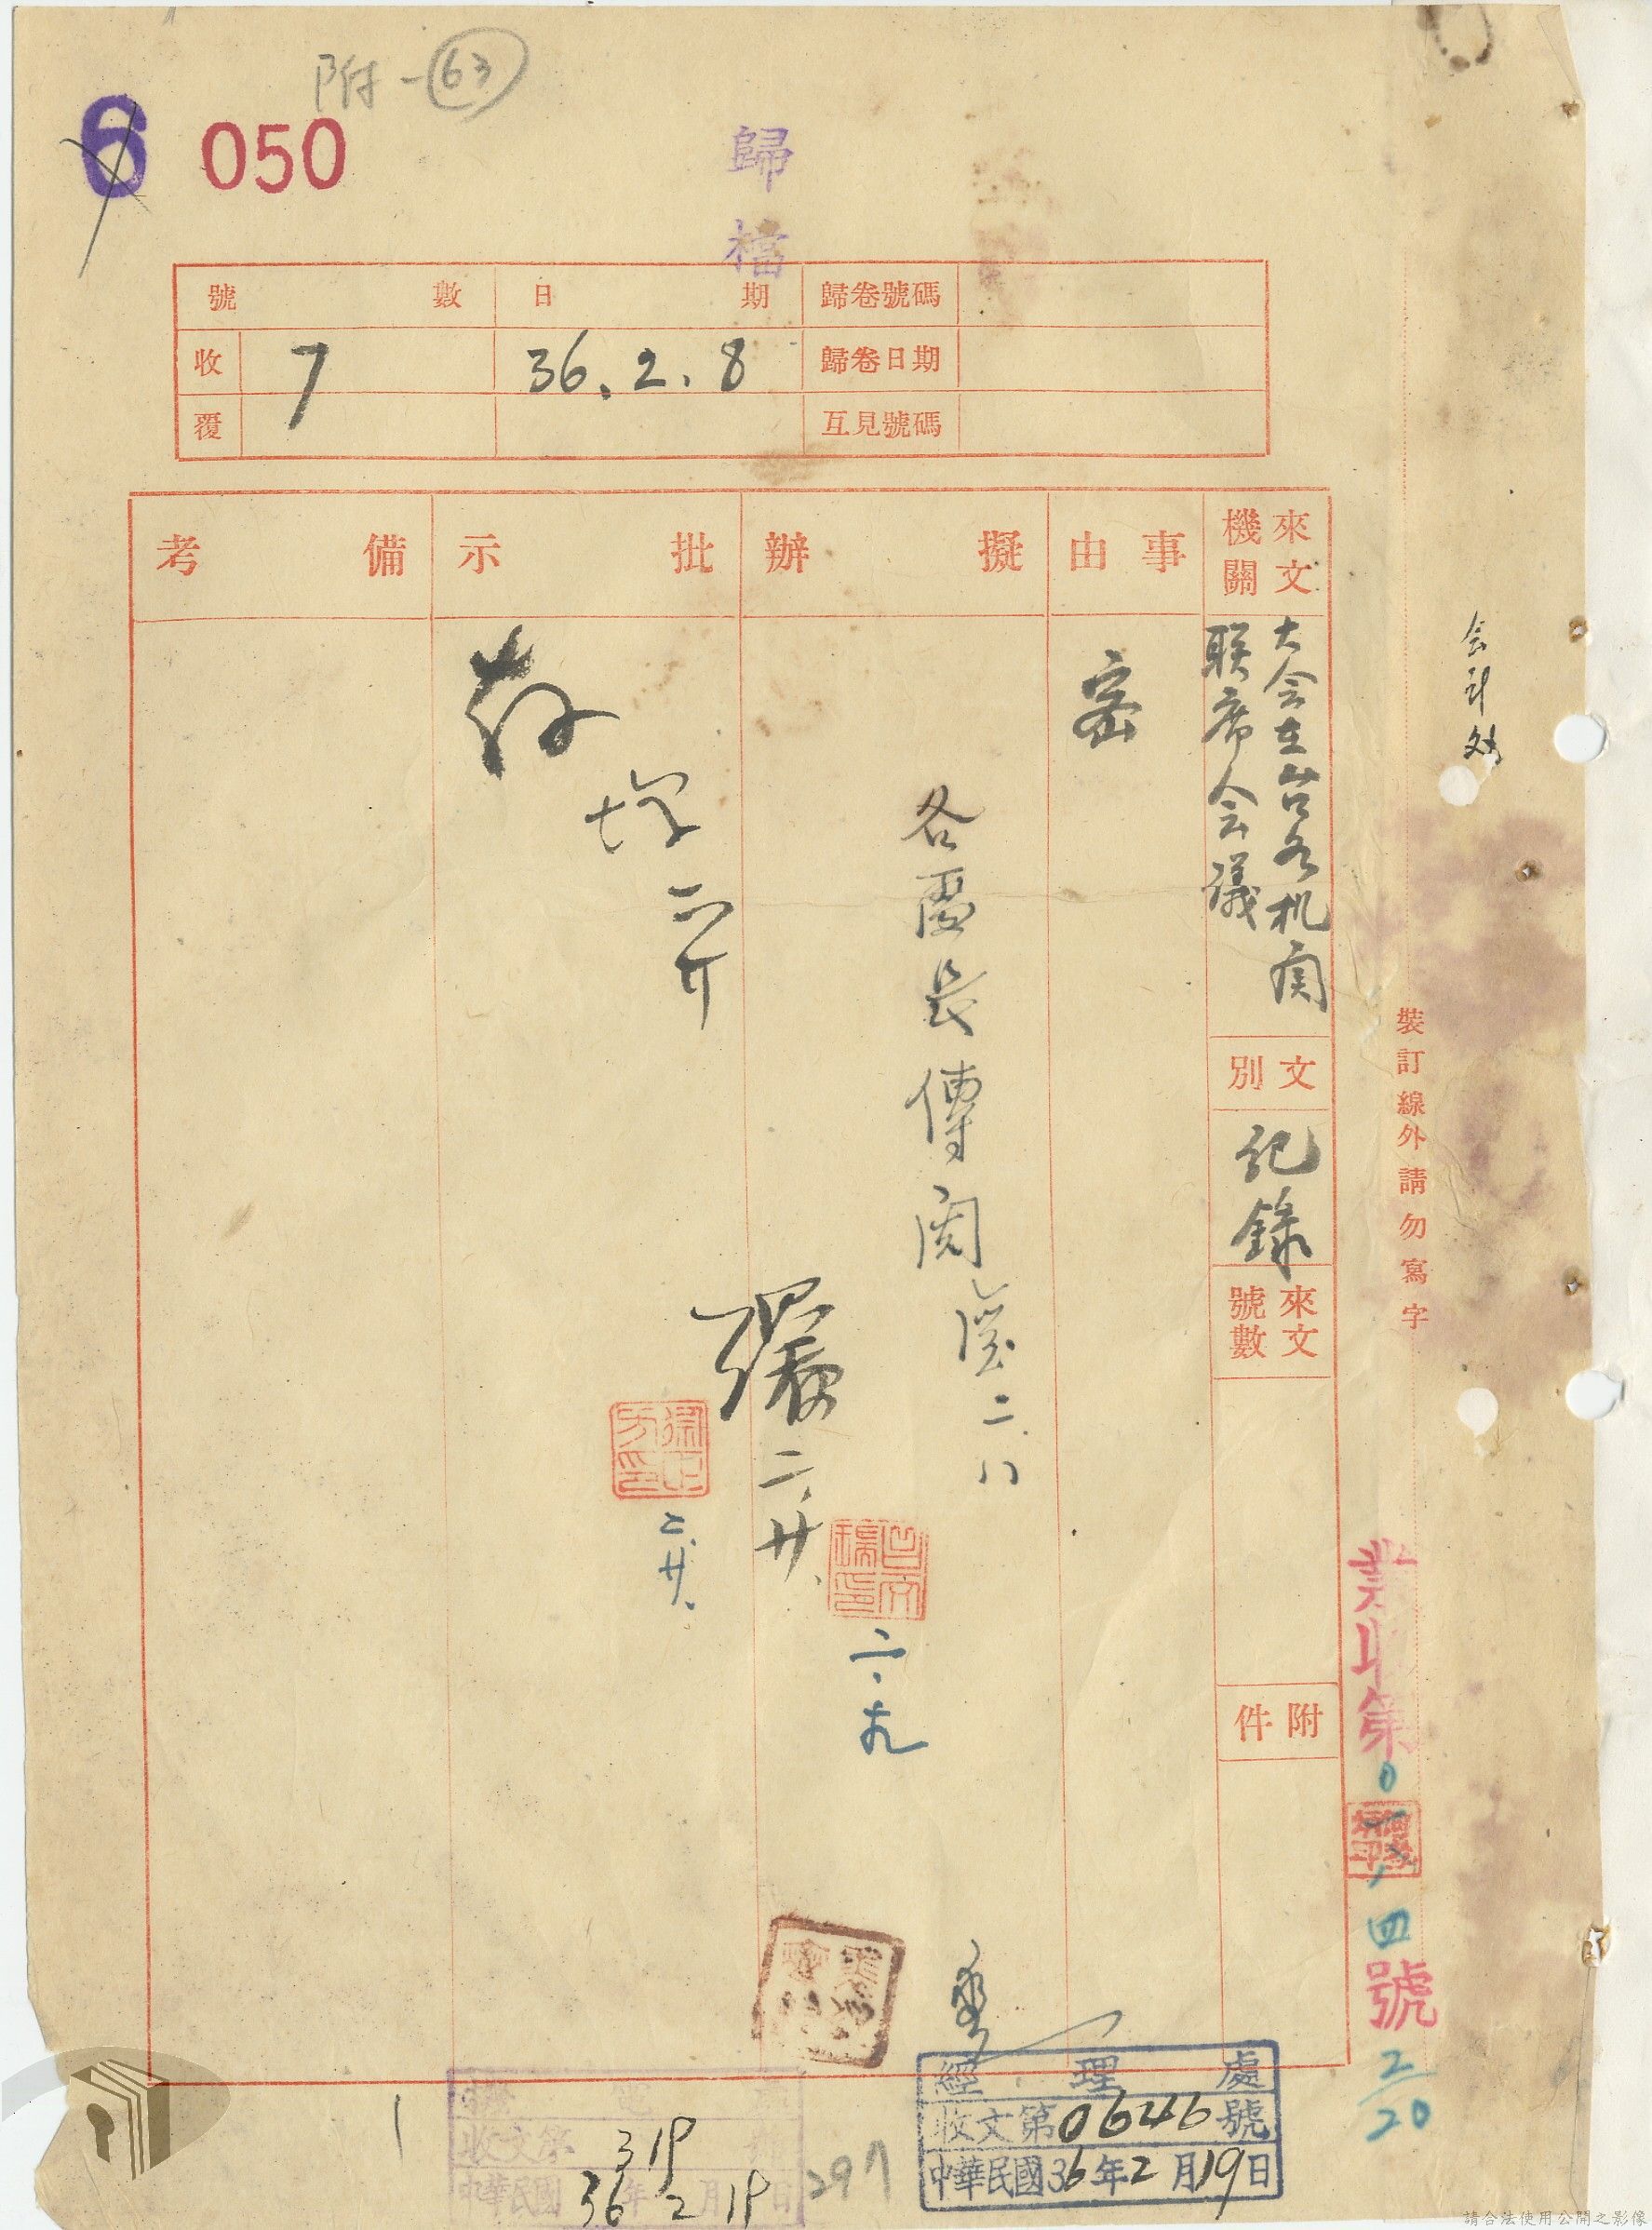 附一 63
6 050
歸檔
號數 日期 歸卷號碼
收 7 36.2.8 歸卷日期
覆 互見號碼
來文機關
大会在台各机関
联席会議
文別
紀錄
來文號數
附件
事由
密
擬辦
各處長傳閱
二.八
二.廿.
二.九
批示
存
二.廿.
備考
会計處
裝訂線外請勿寫字
業收第
四號
2/20
經理處
收文第0646號
中華民國36年2月19日
收文第 號
中華民國36年2月 日
297
請合法使用公開之影像